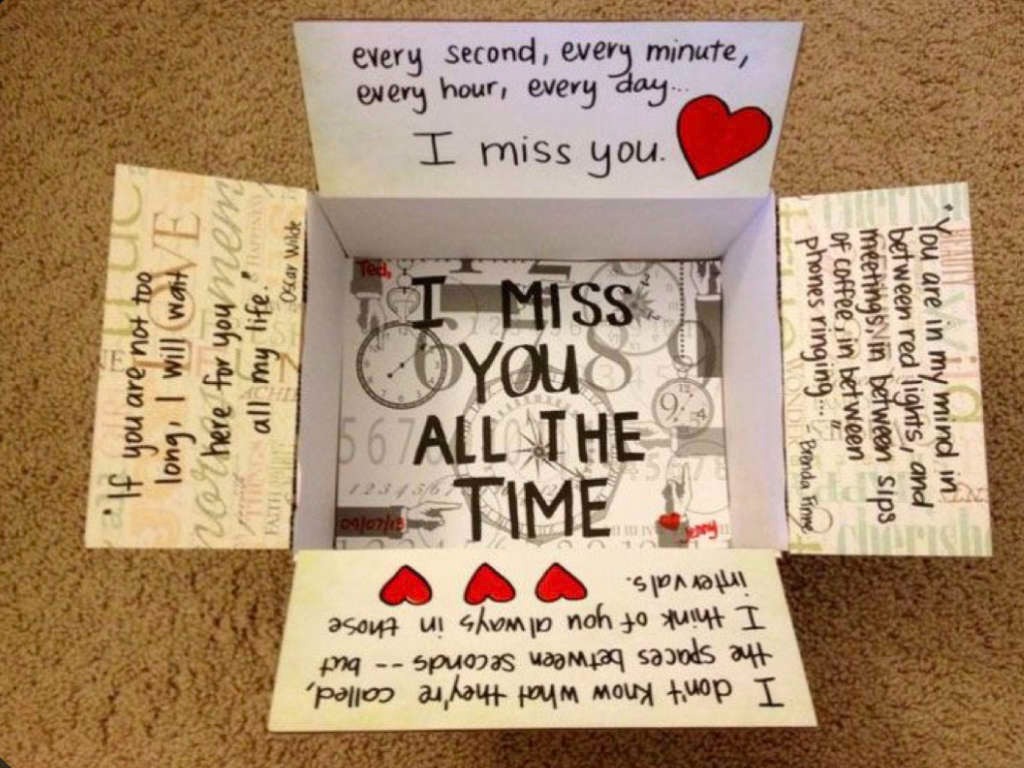 every second, every minute,
every hour, every day...
I miss you.
"If you are not too
long, I will wait
here for you
all my life."
Oscar Wilde
Ted,
I MISS
YOU
ALL THE
TIME
09/07/13
Jenny
"You are in my mind in
between red lights, and
meetings, in between sips
of coffee, in between
phones ringing..."
- Brenda Finne
I don't know what they're called,
the spaces between seconds -- but
I think of you always in those
intervals.
LOVE
cherish
cherish
6 7 8 9
5 6 7
1 2 3 4 5 6